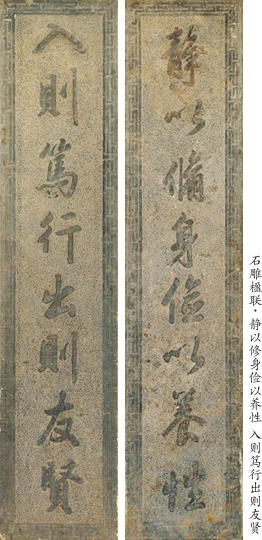 靜以脩身儉以養性
入則篤行出則友賢
石雕楹联·静以修身俭以养性 入则笃行出则友贤